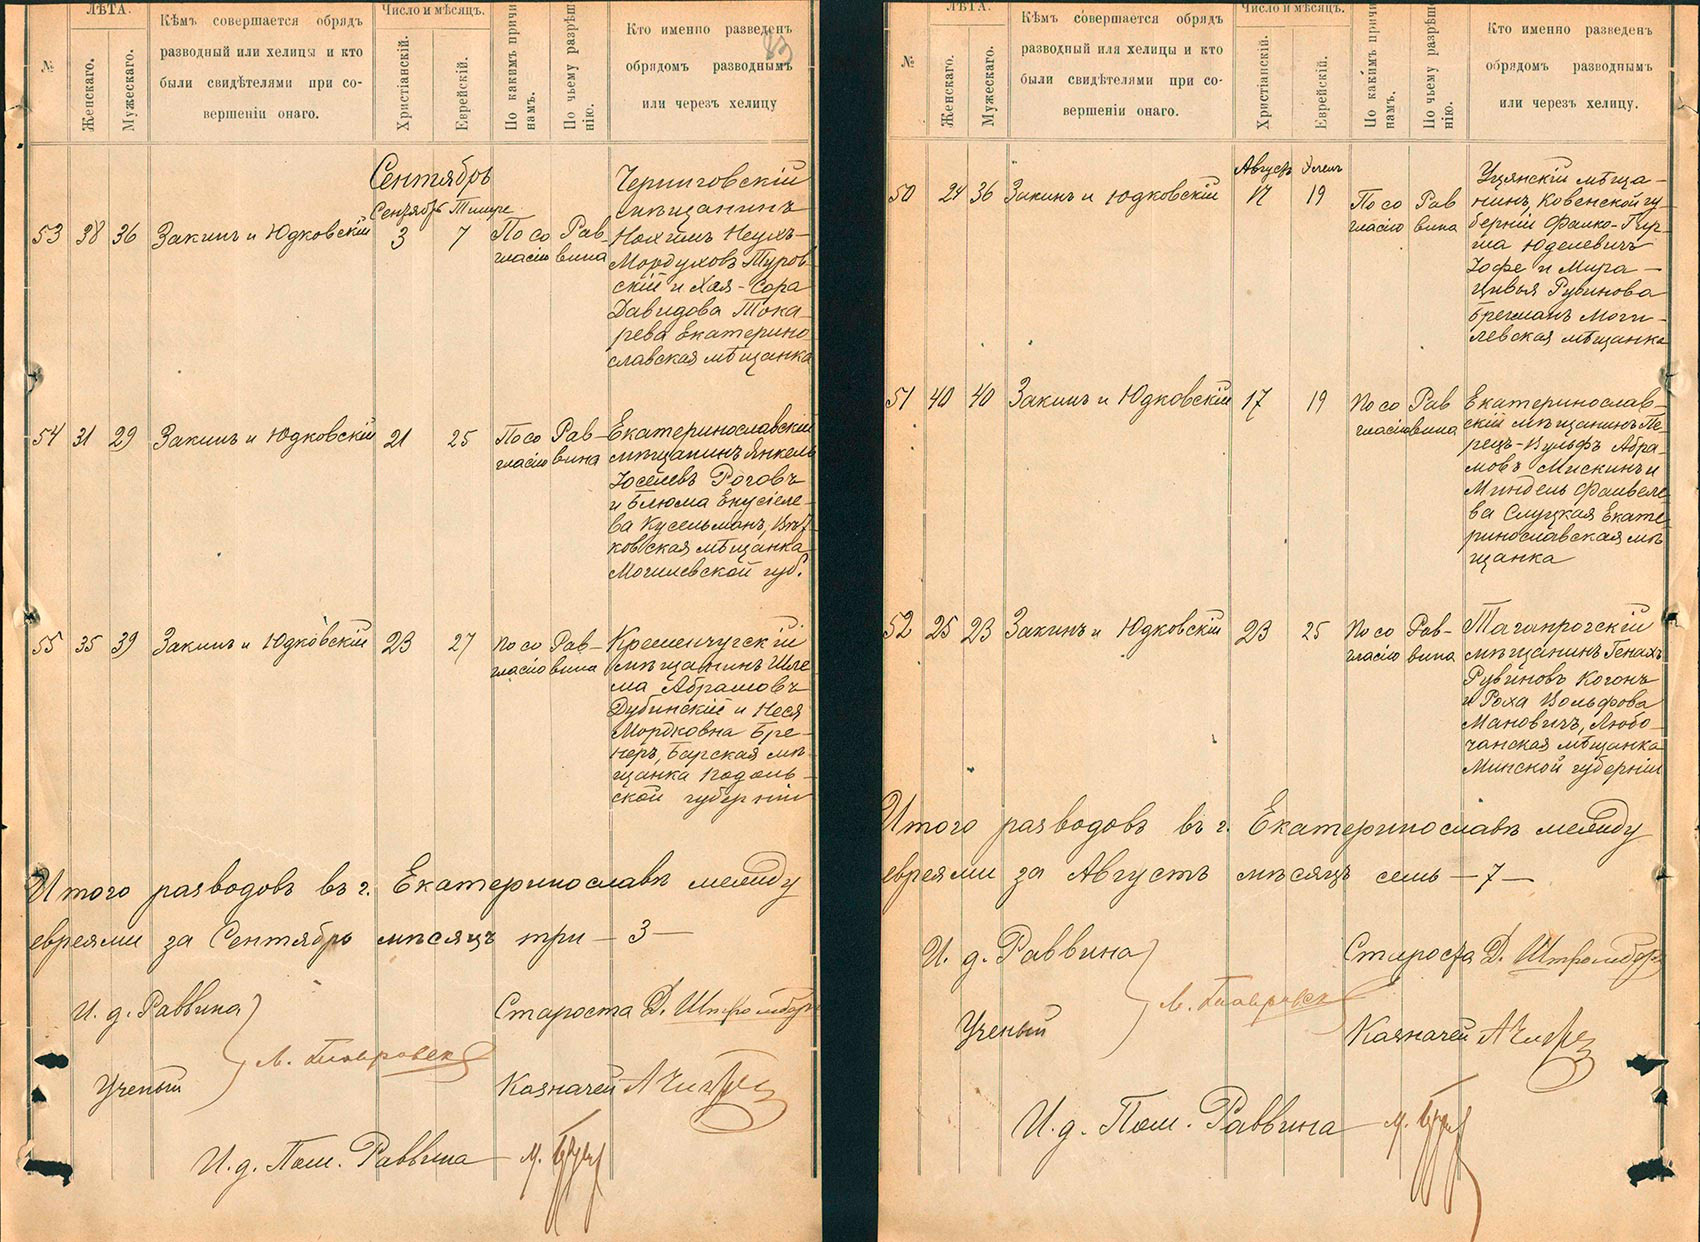 №
ЛѢТА.
Женскаго.
Мужескаго.
Кѣмъ совершается обрядъ
разводный или хелицы и кто
были свидѣтелями при со-
вершеніи онаго.
Число и мѣсяцъ.
Христіанскій.
Еврейскій.
По какимъ причи
намъ.
По чьему разрѣш
нію.
Кто именно разведенъ
обрядомъ разводнымъ
или черезъ хелицу
Сентябрь
Сентябрь Тишре
53 38 36 Закинъ и Юдковскій 3 7 По со Рав
гласію вина
Черниговскій
мѣщанинъ
Нохимъ Неухъ-
Мордуховъ Туров
скій и Хая-Сора
Давидова Тока
рева Екатерино
славская мѣщанка
54 31 29 Закинъ и Юдковскій 21 25 По со Рав-
гласію вина
Екатеринославскій
мѣщанинъ Янкель
Іоселевъ Роговъ
и Блюма Екусіеле-
ва Кусельманъ,
ковская мѣщанка
Могилевской губ.
55 35 39 Закинъ и Юдковскій 23 27 По со Рав-
гласію вина
Кременчугскій
мѣщанинъ Шле
ма Абрамовъ
Дубинскій и Неся
Мордковна Бре-
неръ, Барская мѣ-
щанка Подоль-
ской губерніи
Итого разводовъ въ г. Екатеринославѣ между
евреями за Сентябрь мѣсяцъ три — 3 —
И. д. Раввина
Ученый
Староста Д.
Казначей
И. д. Пом. Раввина
№
ЛѢТА.
Женскаго.
Мужескаго.
Кѣмъ совершается обрядъ
разводный или хелицы и кто
были свидѣтелями при со-
вершеніи онаго.
Число и мѣсяцъ.
Христіанскій.
Еврейскій.
По какимъ причи
намъ.
По чьему разрѣше
нію.
Кто именно разведенъ
обрядомъ разводнымъ
или черезъ хелицу.
Августъ Элелъ
50 24 36 Закинъ и Юдковскій 17 19 По со Рав
гласію вина
Уцянскій мѣща-
нинъ, Ковенской гу
берніи Фалко-Гир
ша Юделевичъ
Іофе и Мира-
Цивья Рувинова
Брегманъ Моги-
левская мѣщанка
51 40 40 Закинъ и Юдковскій 17 19 По со Рав
гласію вина
Екатеринослав-
скій мѣщанинъ Пе
рецъ-Вульфъ Абра-
мовъ Мискинъ и
Миндель Файвеле
ва Слуцкая Екате
ринославская мѣ
щанка
52 25 23 Закинъ и Юдковскій 23 25 По со Рав-
гласію вина
Таганрогскій
мѣщанинъ Генахъ
Рувиновъ Когонъ
и Роха Вольфова
Мановичъ, Любо-
чанская мѣщанка
Минской губерніи
Итого разводовъ въ г. Екатеринославѣ между
евреями за Августъ мѣсяцъ семь — 7 —
И. д. Раввина
Ученый
Староста Д.
Казначей
И. д. Пом. Раввина